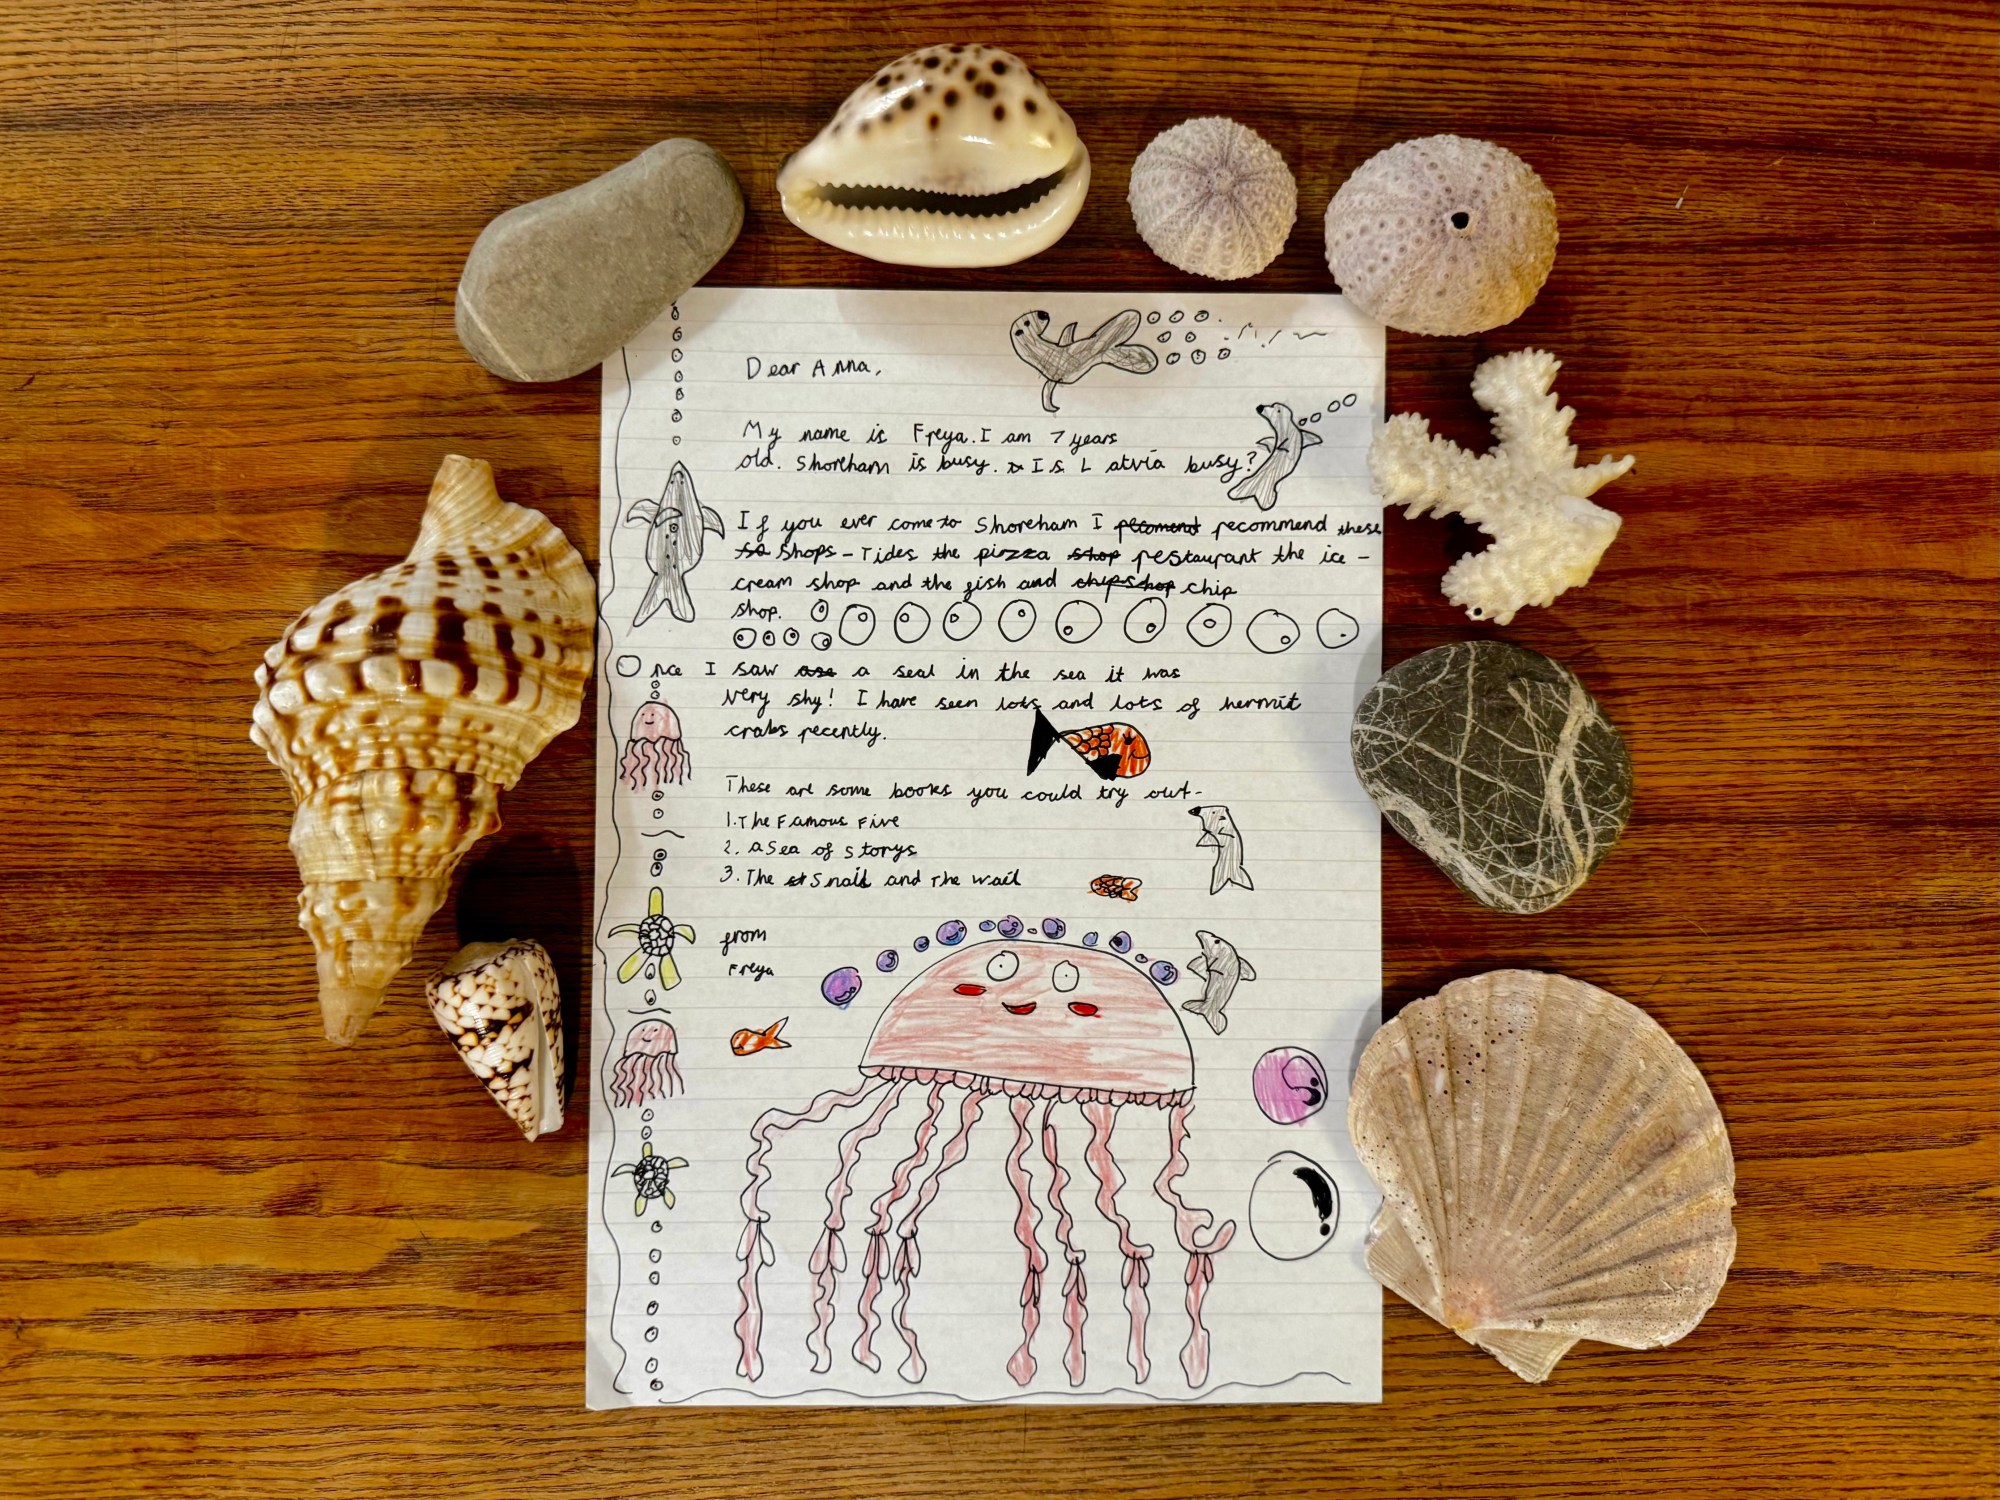 Dear Anna,
My name is Freya. I am 7 years
old. Shoreham is busy. Is Latvia busy?
If you ever come to Shoreham I recomend recommend these
so shops – Tides the pizza shop restaurant the ice –
cream shop and the fish and chip shop chip
shop.
Once I saw a seal in the sea it was
very shy! I have seen lots and lots of hermit
crabs recently.
These are some books you could try out-
1. The Famous Five
2. a Sea of storys
3. The Snail and The wail
from
Freya